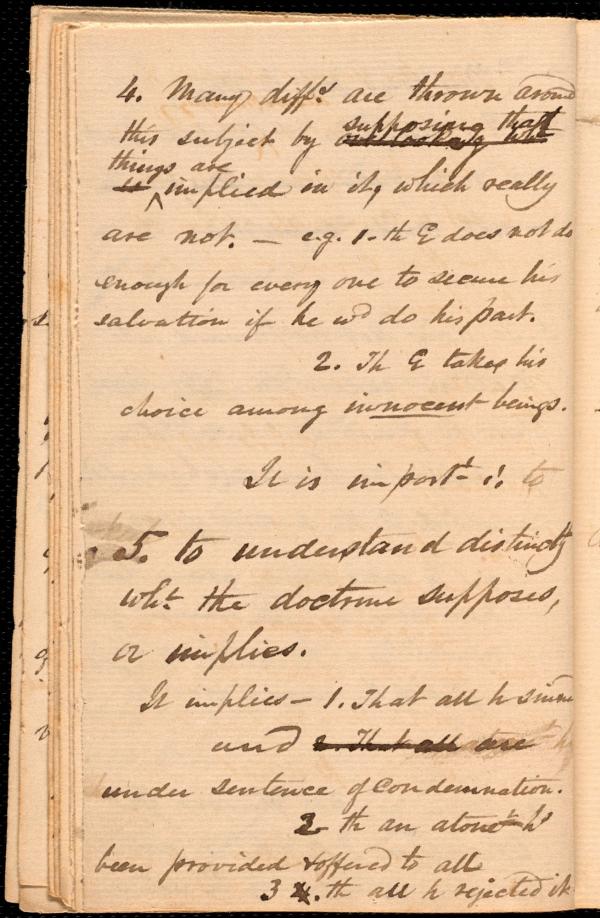 4. Many diffs. are thrown around
this subject by supposing that
things are
implied in it, which really
are not. — e.g. 1. th G does not do
enough for every one to secure his
salvation if he wd do his part.
2. Th G takes his
choice among innocent beings.
It is import‑t to
5. to understand distinctly
wht the doctrine supposes,
or implies.
It implies — 1. That all h sinned
and 2. That all are
under sentence of condemnation.
2 th an atonet hs
been provided & offered to all
3 4. th all h rejected it